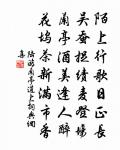 陌上行歌日正長
吳蠶捉績麥登場
蘭亭酒美逢人醉
花塢茶新滿市香
陸游蘭亭道上詞典網